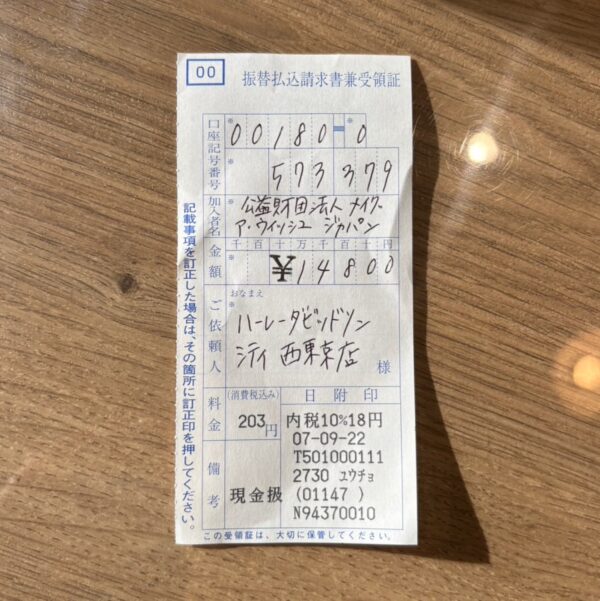 00
振替払込請求書兼受領証
口座記号番号
※
00180=
※
0
※
573379
加入者名
※
公益財団法人 メイク・
ア・ウィッシュ ジャパン
金額
千百十万千百十円
※
¥14800
ご依頼人
おなまえ
※
ハーレーダビッドソン
シティ 西東京店
様
料金
(消費税込み)
203円
日附印
内税10%18円
07-09-22
T501000111
2730 ユウチョ
(01147 )
N94370010
備考
現金扱
この受領証は、大切に保管してください。
記載事項を訂正した場合は、その箇所に訂正印を押してください。